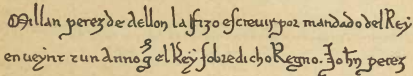 Millan perez de aellon la fizo escreuir por mandado del Rey
en ueynt τ un anno q̃ el Rey sobredicho Regno. Johñ perez